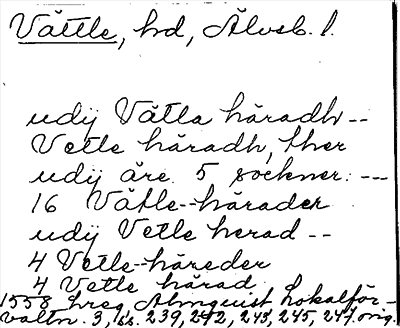 Vättle, hd, Älvsb. l.
udij Vätla häradh --
Vetle häradh, ther
udij äre 5 sockner. ---
16 Vätle-härader
udij Vetle herad --
4 Vetle-häreder
4 Vetle härad.
1558 Lreg Almquist Lokalför-
valtn. 3, ss. 239, 242, 243, 245, 247 orig.